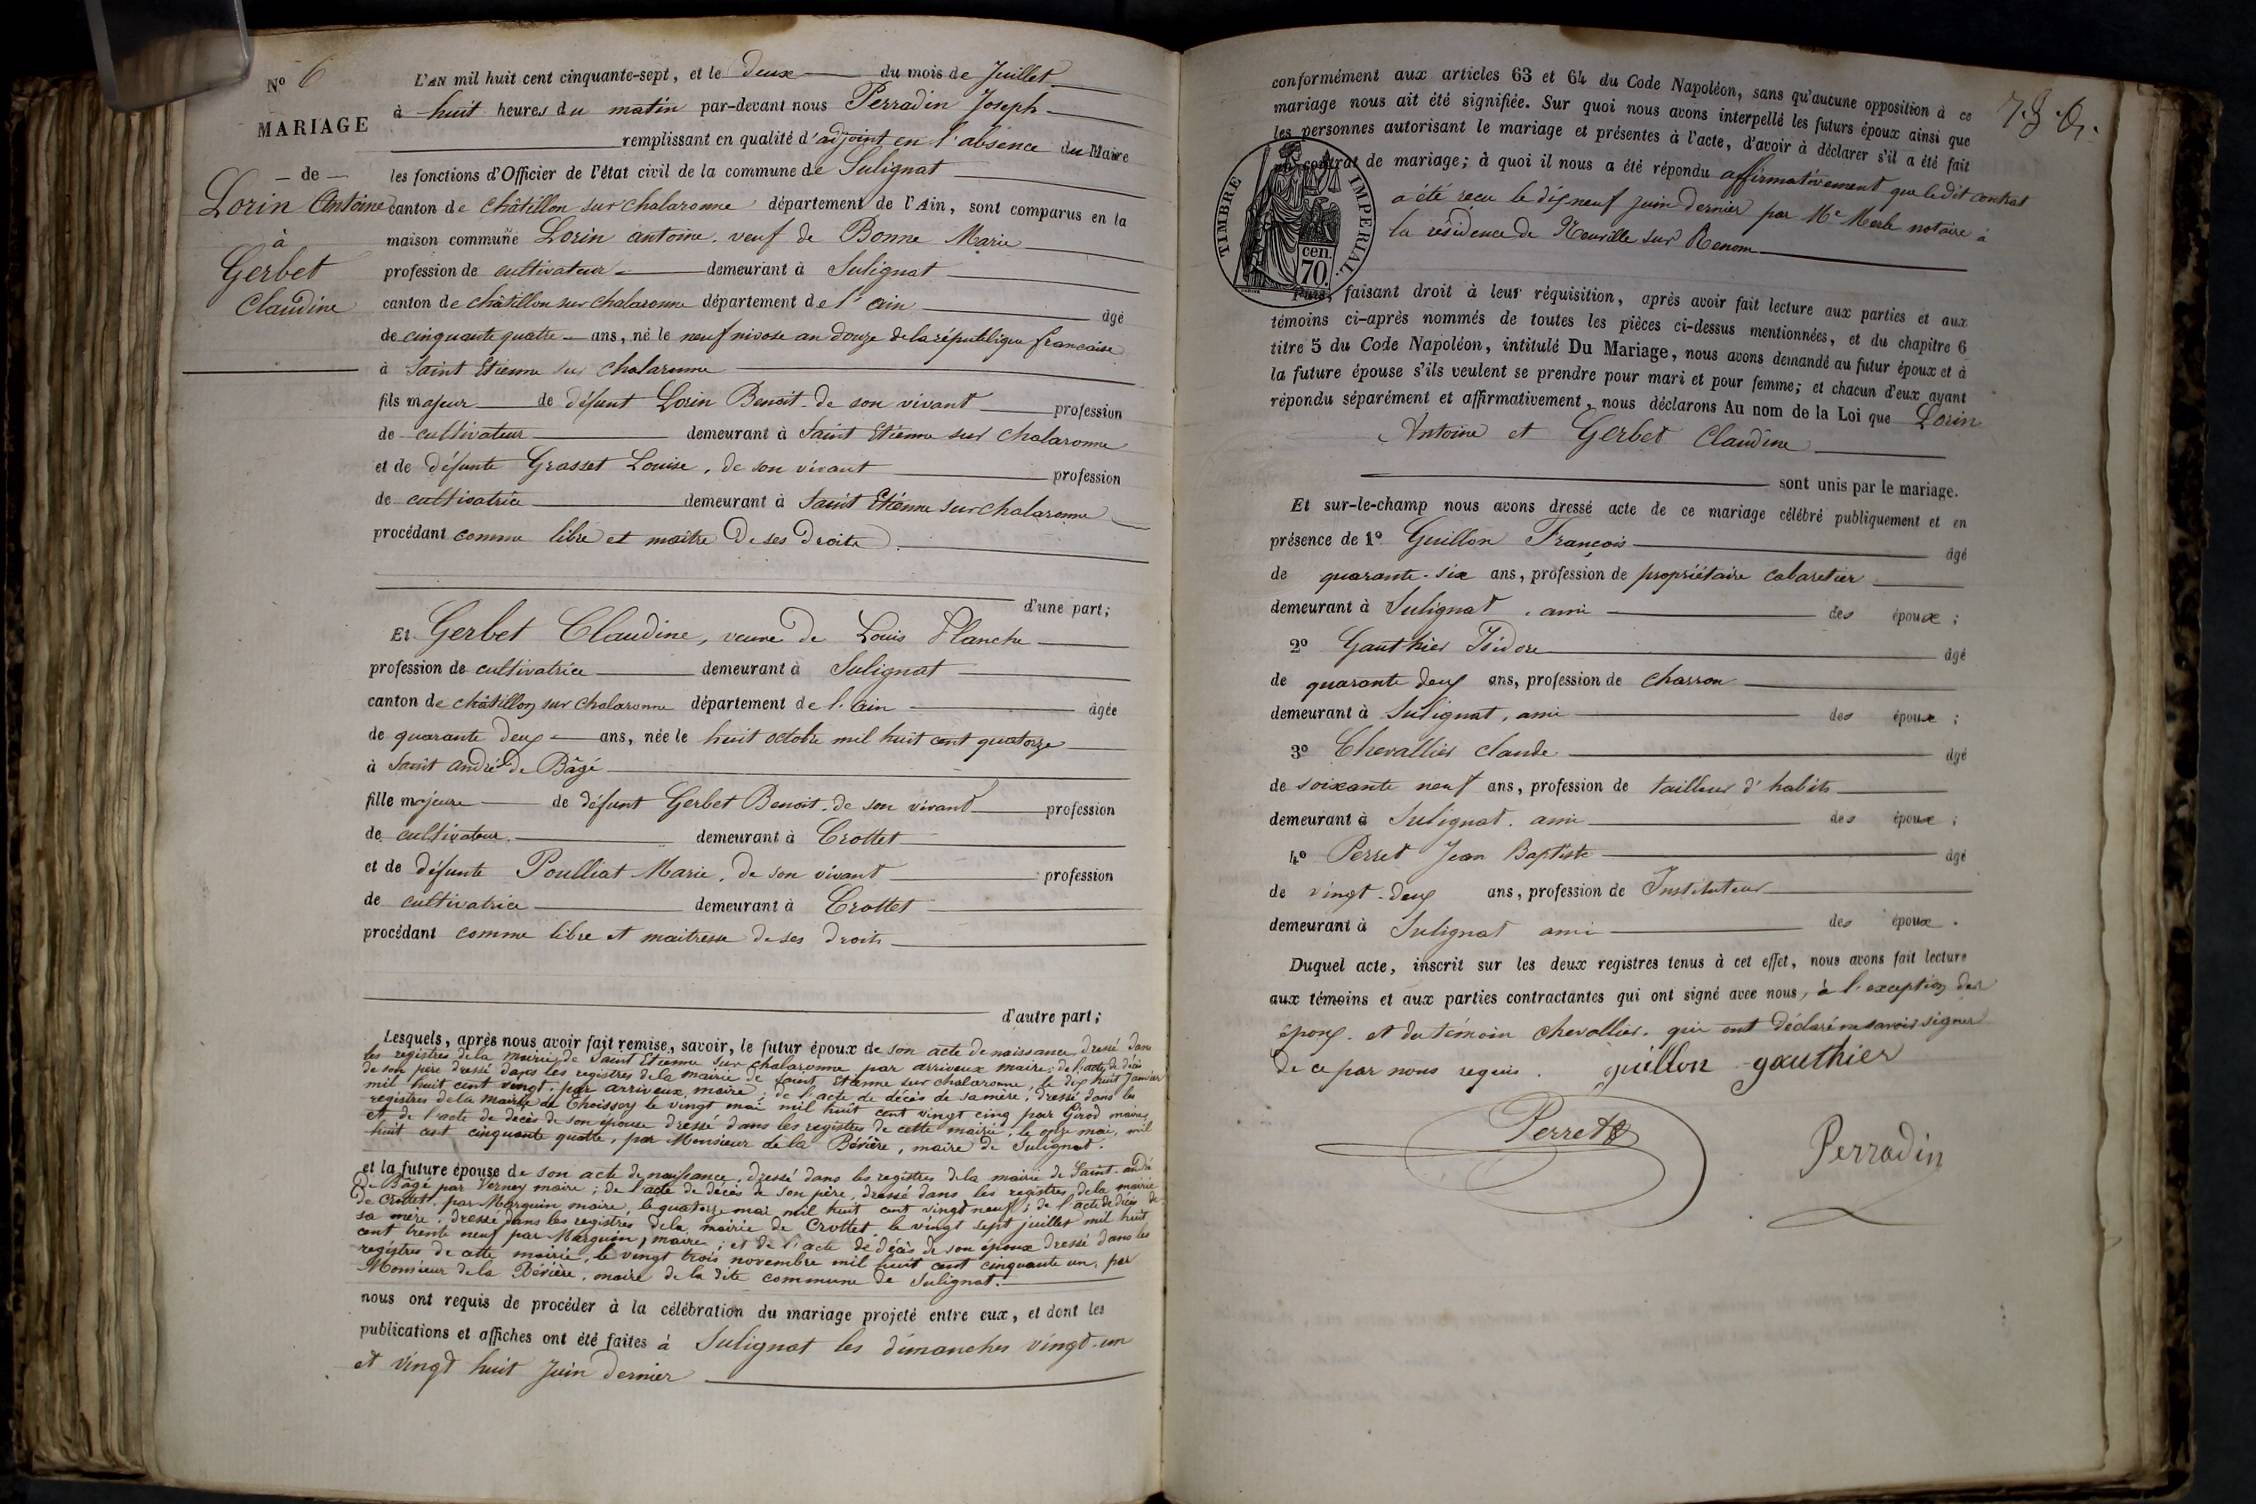 N° 6
MARIAGE
— de —
Lorin Antoine
à
Gerbet
Claudine
L'AN mil huit cent cinquante-sept, et le deux du mois de Juillet
à huit heures du matin par-devant nous Perradin Joseph
remplissant en qualité d'adjoint en l'absence du Maire
les fonctions d'Officier de l'état civil de la commune de Sulignat
canton de châtillon sur chalaronne département de l'Ain, sont comparus en la
maison commune Lorin antoine. veuf de Bonne Marie
profession de cultivateur demeurant à Sulignat
canton de châtillon sur chalaronne département de l'ain âgé
de cinquante quatre ans, né le neuf nivose an douze de la république francaise
à Saint Etienne sur chalaronne
fils majeur de défunt Lorin Benoit. de son vivant profession
de cultivateur demeurant à Saint Etienne sur chalaronne
et de défunte Grasset Louise, de son vivant profession
de cultivatrice demeurant à Saint Etienne sur chalaronne
procédant comme libre et maître de ses droits.
d'une part;
Et Gerbet Claudine, veuve de Louis Planche
profession de cultivatrice demeurant à Sulignat
canton de châtillon sur chalaronne département de l'ain âgée
de quarante deux ans, née le huit octobre mil huit cent quatorze
à Saint andré de Bâgé
fille majeure de défunt Gerbet Benoit. de son vivant profession
de cultivateur. demeurant à Crottet
et de défunte Poulliat Marie. de son vivant profession
de cultivatrice demeurant à Crottet
procédant comme libre et maitresse de ses droits
d'autre part;
Lesquels, après nous avoir fait remise, savoir, le futur époux de son acte de naissance, dressé dans
les registres de la mairie de Saint Etienne sur chalaronne par arriveux maire; de l'acte de décès
de son père dressé dans les registres de la mairie de Saint Etienne sur chalaronne, le dix huit Janvier
mil huit cent vingt. par arriveux, maire; de l'acte de décès de sa mère, dressé dans les
registres de la mairie de Thoissey le vingt mai mil huit cent vingt cinq par Girod maire,
et de l'acte de décès de son épouse dressé dans les registres de cette mairie, le onze mai, mil
huit cent cinquante quatre, par Monsieur de la Bévière, maire de Sulignat.
et la future épouse de son acte de naissance, dressé dans les registres de la mairie de Saint andré
de Bâgé par Verney maire; de l'acte de décès de son père, dressé dans les registres de la mairie
de Crottet, par Marguin, maire, le quatorze mai mil huit cent vingt neuf; de l'acte de décès de
sa mère, dressé dans les registres de la mairie de Crottet le vingt sept juillet mil huit
cent trente neuf par Marguin, maire; et de l'acte de décès de son époux dressé dans les
registres de cette mairie, le vingt trois novembre mil huit cent cinquante un, par
Monsieur de la Bévière, maire de la dite commune de Sulignat.
nous ont requis de procéder à la célébration du mariage projeté entre eux, et dont les
publications et affiches ont été faites à Sulignat les dimanches vingt-un
et vingt huit Juin dernier
conformément aux articles 63 et 64 du Code Napoléon, sans qu'aucune opposition à ce
mariage nous ait été signifiée. Sur quoi nous avons interpellé les futurs époux ainsi que
les personnes autorisant le mariage et présentes à l'acte, d'avoir à déclarer s'il a été fait
un contrat de mariage; à quoi il nous a été répondu affirmativement que ledit contrat
a été reçu le dixneuf juin dernier par Me Merle notaire à
la résidence de Neuville sur Renom
TIMBRE IMPERIAL.
cen.
70.
Puis, faisant droit à leur réquisition, après avoir fait lecture aux parties et aux
témoins ci-après nommés de toutes les pièces ci-dessus mentionnées, et du chapitre 6
titre 5 du Code Napoléon, intitulé Du Mariage, nous avons demandé au futur époux et à
la future épouse s'ils veulent se prendre pour mari et pour femme; et chacun d'eux ayant
répondu séparément et affirmativement, nous déclarons Au nom de la Loi que Lorin
Antoine et Gerbet Claudine
sont unis par le mariage.
Et sur-le-champ nous avons dressé acte de ce mariage célébré publiquement et en
présence de 1° Guillon François âgé
de quarante-six ans, profession de propriétaire cabaretier
demeurant à Sulignat, ami des époux;
2° Gauthier Isidore âgé
de quarante deux ans, profession de charron
demeurant à Sulignat, ami des époux;
3° Chevallier claude âgé
de soixante neuf ans, profession de tailleur d'habits
demeurant à Sulignat. ami des époux;
4° Perret Jean Baptiste âgé
de vingt-deux ans, profession de Instituteur
demeurant à Sulignat ami des époux.
Duquel acte, inscrit sur les deux registres tenus à cet effet, nous avons fait lecture
aux témoins et aux parties contractantes qui ont signé avec nous, à l'exception des
époux. et du témoin chevallier. qui ont déclaré ne savoir signer
de ce par nous requis. guillon gauthier
Perret
Perradin